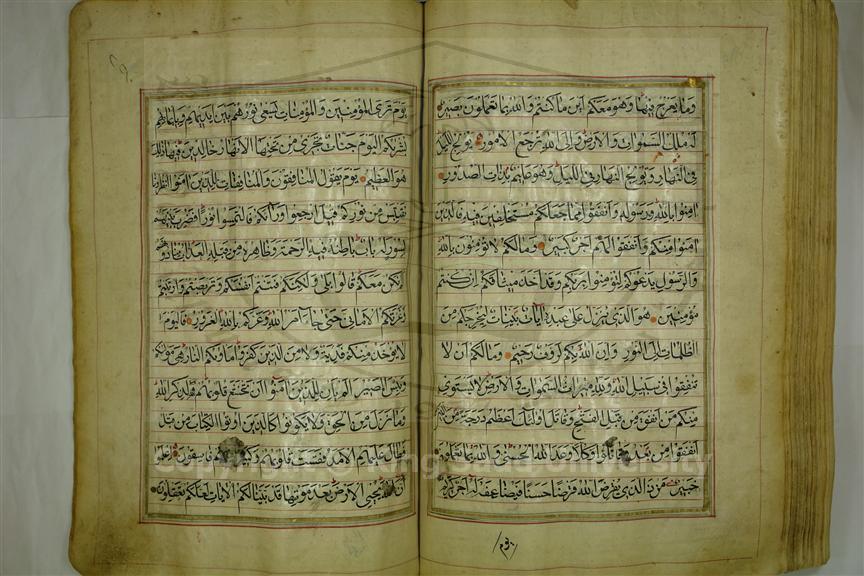 وما يعرج فيها وهو معكم اين ما كنتم والله بما تعملون بصير
له ملك السموات والارض والى الله ترجع الامور يولج الليل
في النهار ويولج النهار في الليل وهو عليم بذات الصدور
امنوا بالله ورسوله وانفقوا مما جعلكم مستخلفين فيه فالذين
امنوا منكم وانفقوا لهم اجر كبير وما لكم لا تؤمنون بالله
والرسول يدعوكم لتؤمنوا بربكم وقد اخذ ميثاقكم ان كنتم
مؤمنين هو الذي ينزل على عبده ايات بينات ليخرجكم من
الظلمات الى النور وان الله بكم لرؤف رحيم وما لكم ان لا
تنفقوا في سبيل الله ولله ميراث السموات والارض لا يستوي
منكم من انفق من قبل الفتح وقاتل اولئك اعظم درجة من الذين
انفقوا من بعد وقاتلوا وكلا وعد الله الحسنى والله بما تعملون
خبير من ذا الذي يقرض الله قرضا حسنا فيضاعفه له اجر كريم
يوم
يوم ترى المؤمنين والمؤمنات يسعى نورهم بين ايديهم وبايمانهم
بشريكم اليوم جنات تجري من تحتها الانهار خالدين فيها ذلك
هو العظيم يوم يقول المنافقون والمنافقات للذين امنوا انظرونا
نقتبس من نوركم قيل ارجعوا وراءكم فالتمسوا نورا فضرب بينهم
بسور له باب باطنه فيه الرحمة وظاهره من قبله العذاب ينادونهم
الم نكن معكم قالوا بلى ولكنكم فتنتم انفسكم وتربصتم وارتبتم
وغرتكم الاماني حتى جاء امر الله وغركم بالله الغرور فاليوم
لا يؤخذ منكم فدية ولا من الذين كفروا ماويكم النار هي موليكم
وبئس المصير الم يان للذين امنوا ان تخشع قلوبهم لذكر الله
وما نزل من الحق ولا يكونوا كالذين اوتوا الكتاب من قبل
فطال عليهم الامد فقست قلوبهم وكثير منهم فاسقون اعلموا
ان الله يحيي الارض بعد موتها قد بينا لكم الايات لعلكم تعقلون